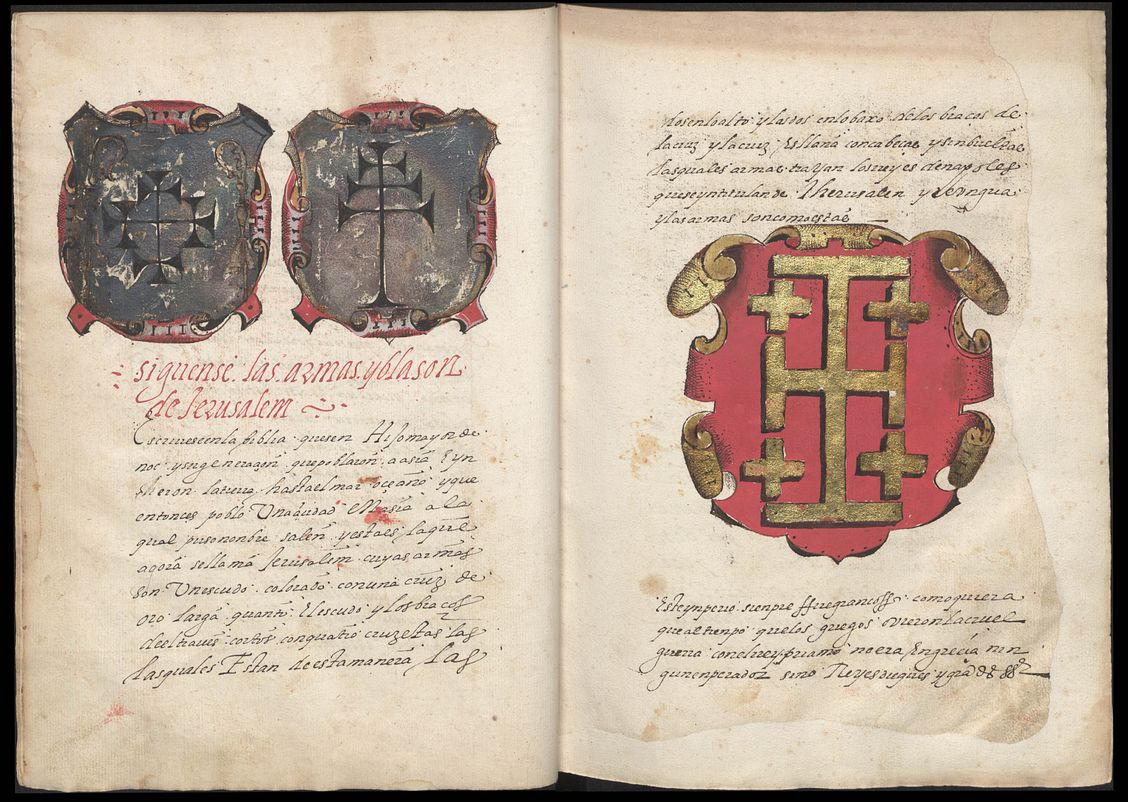 siguense. las. armas. y blason.
de Jerusalem
Escrivese en la biblia. quesen Hijo mayor de
noe y su generaçon. que poblaron. a asia Eyn
cheron. la tierra. hasta el mar oçeano y que
entonces poblo Una çiudad En asia a la
qual puso nonbre salen y esta es la que
agora se llama Jerusalem. cuyas armas
son Un escudo. colorado con una cruz de
oro larga quanto. El escudo y los braços
de el traves cortos con quatro cruzetas las
las quales Estan de esta manera Las
dos en lo alto y las dos en lo baxo de los braços de
la cruz y la cruz. Es llana con cabeças y sin buelta
las quales armas trayan los rreyes de napoles
que se yntitulan de Iherusalen y de Vngria
y las armas son como estas
Este ynperio sienpre ffue gran cossa. como quiera
que al tienpo que los griegos ovieron la cruel
guerra con el rrey priamo no era En greçia nin
gun enperador sino Reyes